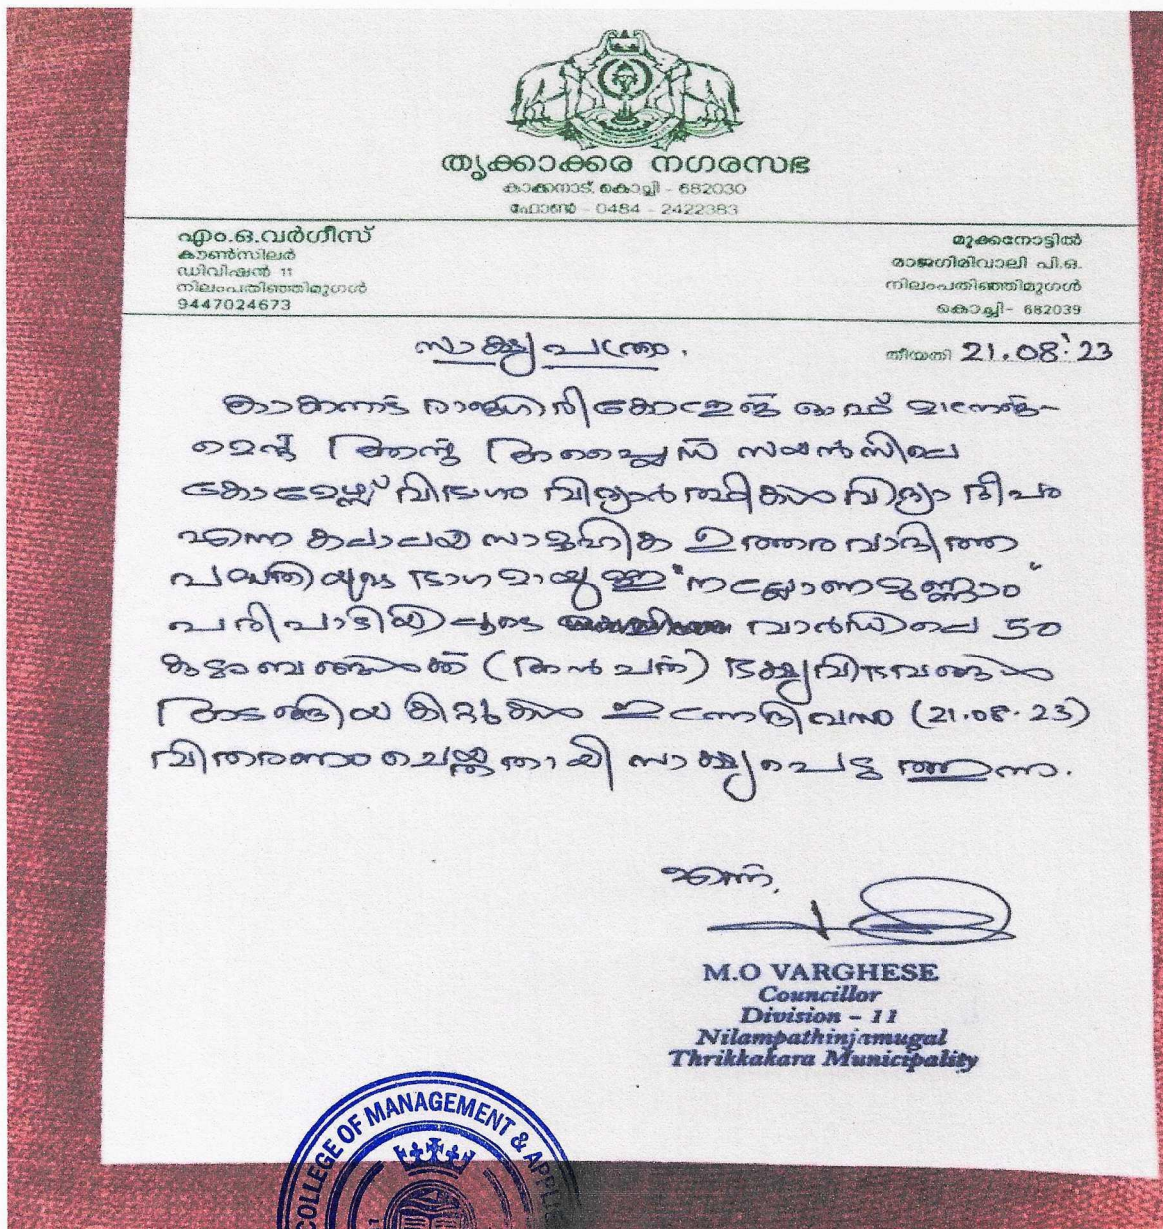 തൃക്കാക്കര നഗരസഭ
കാക്കനാട്, കൊച്ചി - 682030
ഫോൺ - 0484 - 2422383
എം.ഒ.വർഗീസ്
കൗൺസിലർ
ഡിവിഷൻ 11
നിലംപതിഞ്ഞിമുഗൾ
9447024673
മൂക്കനോട്ടിൽ
രാജഗിരിവാലി പി.ഒ.
നിലംപതിഞ്ഞിമുഗൾ
കൊച്ചി- 682039
സാക്ഷ്യപത്രം.
തീയതി 21.08.'23
കാക്കനാട് രാജഗിരി കോളേജ് ഓഫ് മാനേജ്-
മെന്റ് ആന്റ് അപ്ലൈഡ് സയൻസിലെ
കോമേഴ്സ് വിഭാഗം വിദ്യാർത്ഥികൾ വിദ്യാ ദീപം
എന്ന കലാലയ സാമൂഹിക ഉത്തരവാദിത്ത
പദ്ധതിയുടെ ഭാഗമായുള്ള "നല്ലോണമുണ്ണാം"
പരിപാടിയിലൂടെ വാർഡിലെ 50
കുടുംബങ്ങൾക്ക് (അൻപത്) ഭക്ഷ്യവിഭവങ്ങൾ
അടങ്ങിയ കിറ്റുകൾ ഇന്നേദിവസം (21.08.23)
വിതരണം ചെയ്തതായി സാക്ഷ്യപെടുത്തുന്നു.
എന്ന്,
M.O VARGHESE
Councillor
Division - 11
Nilampathinjamugal
Thrikkakara Municipality
COLLEGE OF MANAGEMENT &